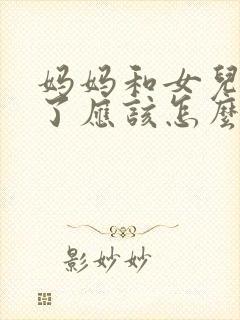 妈妈和女兒
了应該怎麼
影妙妙